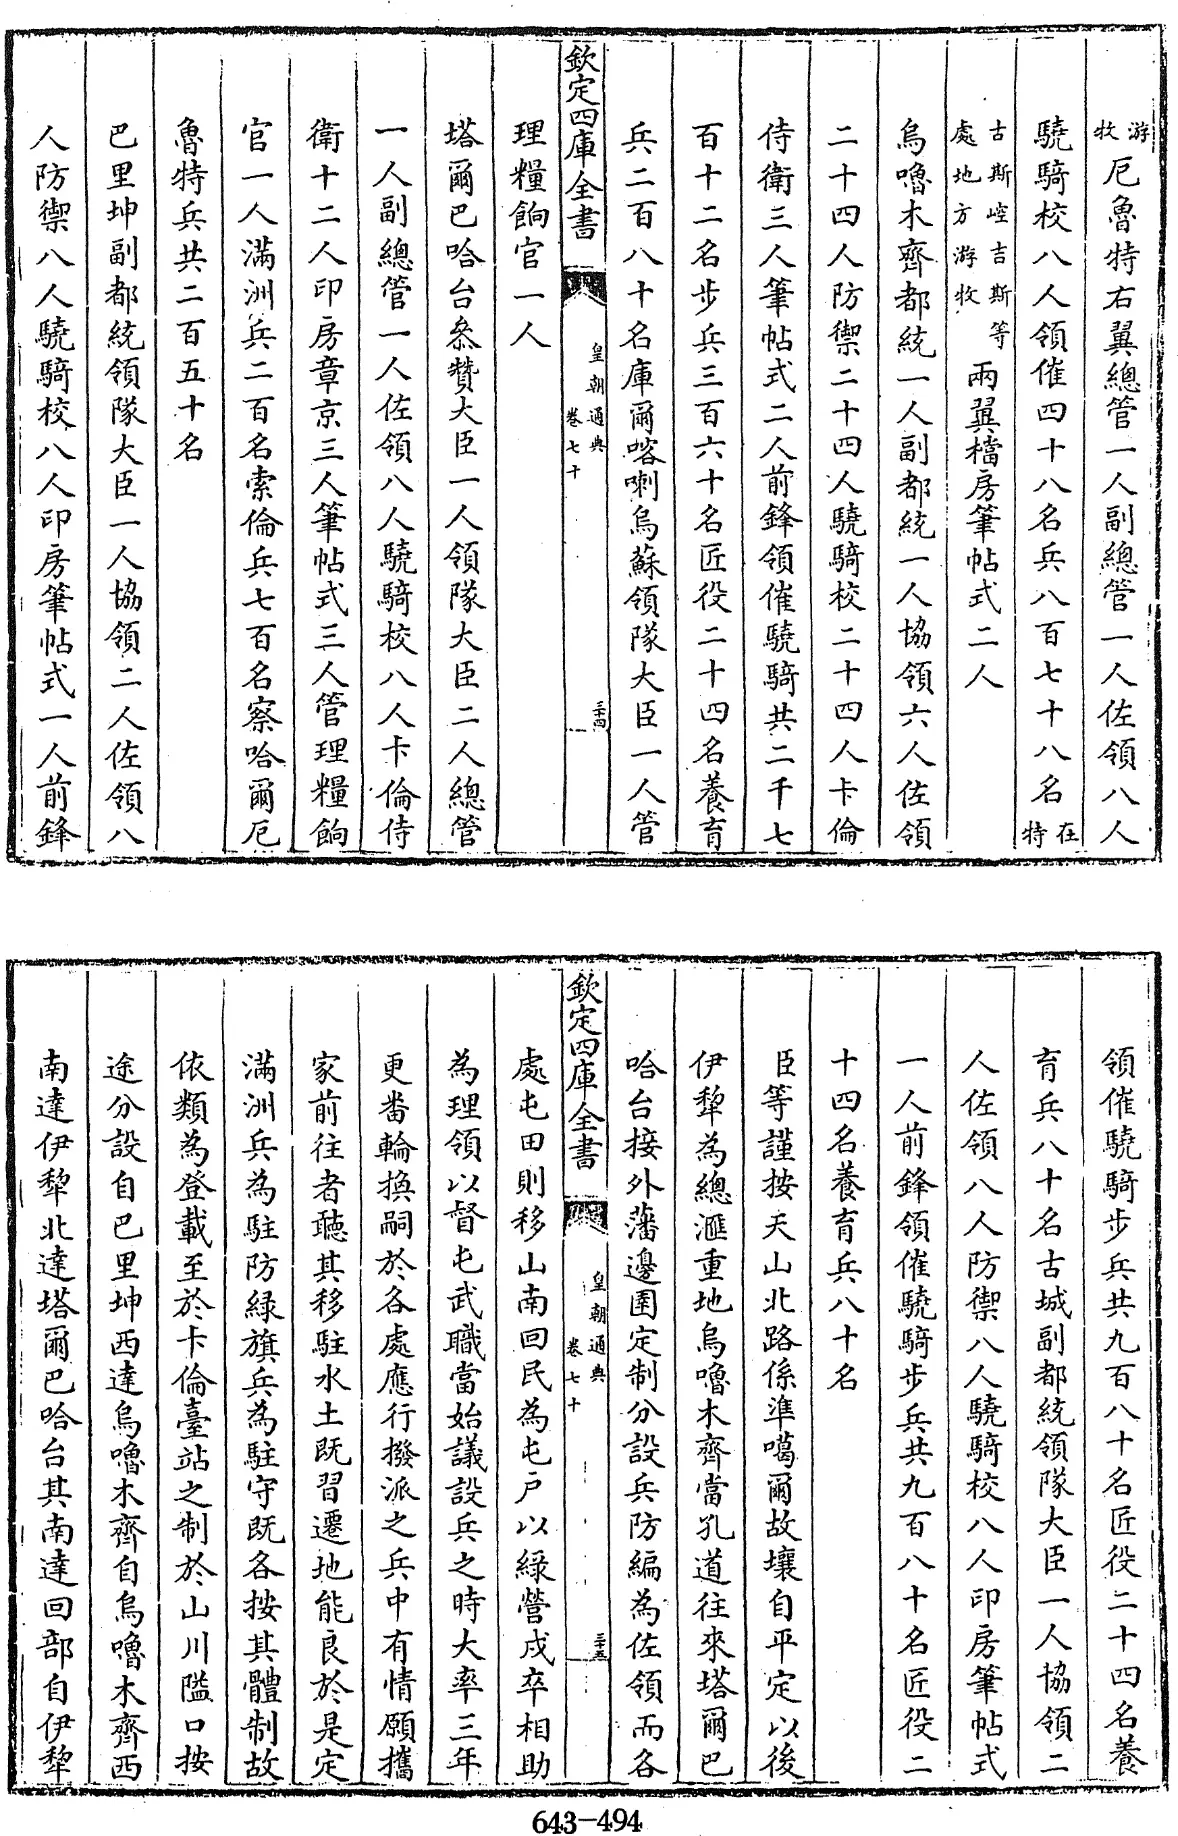 游牧厄魯特右翼總管一人副總管一人佐領八人
驍騎校八人領催四十八名兵八百七十八名在特
古斯崆吉斯等處地方游牧兩翼檔房筆帖式二人
烏嚕木齊都統一人副都統一人協領六人佐領
二十四人防禦二十四人驍騎校二十四人卡倫
侍衛三人筆帖式二人前鋒領催驍騎共二千七
百十二名步兵三百六十名匠役二十四名養育
兵二百八十名庫爾喀喇烏蘇領隊大臣一人管
欽定四庫全書
皇朝通典
卷七十
三十四
理糧餉官一人
塔爾巴哈台參贊大臣一人領隊大臣二人總管
一人副總管一人佐領八人驍騎校八人卡倫侍
衛十二人印房章京三人筆帖式三人管理糧餉
官一人滿洲兵二百名索倫兵七百名察哈爾厄
魯特兵共二百五十名
巴里坤副都統領隊大臣一人協領二人佐領八
人防禦八人驍騎校八人印房筆帖式一人前鋒
領催驍騎步兵共九百八十名匠役二十四名養
育兵八十名古城副都統領隊大臣一人協領二
人佐領八人防禦八人驍騎校八人印房筆帖式
一人前鋒領催驍騎步兵共九百八十名匠役二
十四名養育兵八十名
臣等謹按天山北路係準噶爾故壤自平定以後
伊犂為總滙重地烏嚕木齊當孔道往來塔爾巴
哈台接外藩邊圉定制分設兵防編為佐領而各
欽定四庫全書
皇朝通典
卷七十
三十五
處屯田則移山南回民為屯戶以綠營戍卒相助
為理領以督屯武職當始議設兵之時大率三年
更畨輪換嗣於各處應行撥派之兵中有情願攜
家前往者聽其移駐水土既習遷地能良於是定
滿洲兵為駐防綠旗兵為駐守既各按其體制故
依類為登載至於卡倫臺站之制於山川隘口按
途分設自巴里坤西達烏嚕木齊自烏嚕木齊西
南達伊犂北達塔爾巴哈台其南達回部自伊犂
643-494